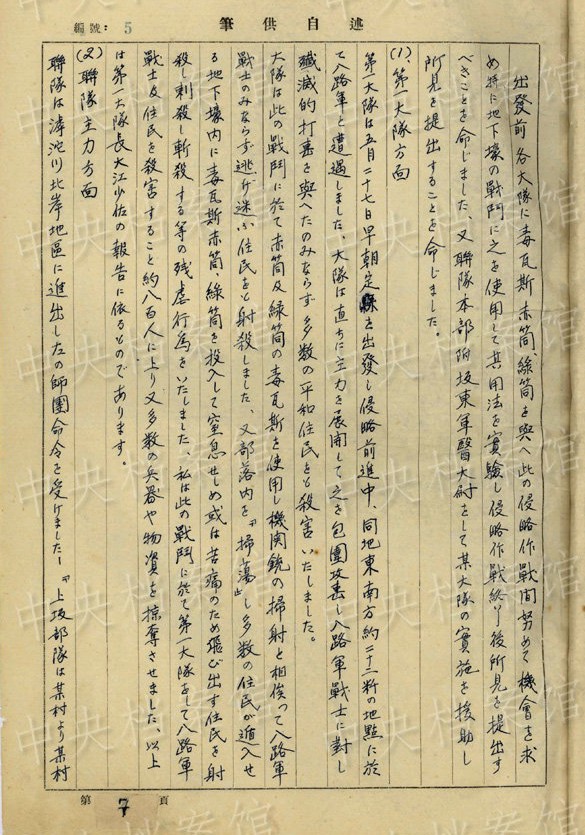 述自供筆
編號：5
出發前各大隊に毒瓦斯赤筒、綠筒を與へ此の侵略作戰間努めて機會を求
め特に地下壕の戰鬥に之を使用して其用法を實驗し侵略作戰終了後所見を提出す
べきことを命じました、又聯隊本部附坂東軍醫大尉をして某大隊の實施を援助し
所見を提出することを命じました。
(1)、第一大隊方面
第一大隊は五月二十七日早朝定縣を出發し侵略前進中、同地東南方約二十二粁の地點に於
て八路軍と遭遇しました。大隊は直ちに主力を展開して之を包圍攻擊し八路軍戰士に對し
殲滅的打擊を與へたのみならず多数の平和住民をも殺害いたしました。
大隊は此の戰鬥に於て赤筒及綠筒の毒瓦斯を使用し機関銃の掃射と相俟って八路軍
戰士のみならず逃げ迷ふ住民をも射殺しました、又部落内を『掃蕩』し多数の住民が遁入せ
る地下壕内に毒瓦斯赤筒、綠筒を投入して窒息せしめ或は苦痛のため飛び出す住民を射
殺し刺殺し斬殺する等の残虐行為をいたしました、私は此の戰鬥に於て第一大隊をして八路軍
戰士及住民を殺害すること約八百人に上り又多数の兵器や物資を掠奪させました、以上
は第一大隊長大江少佐の報告に依るものであります。
(2)聯隊主力方面
聯隊は滹沱川北岸地區に進出したの師團命令を受けました—『上坂部隊は某村より某村
第7頁
中央檔案馆